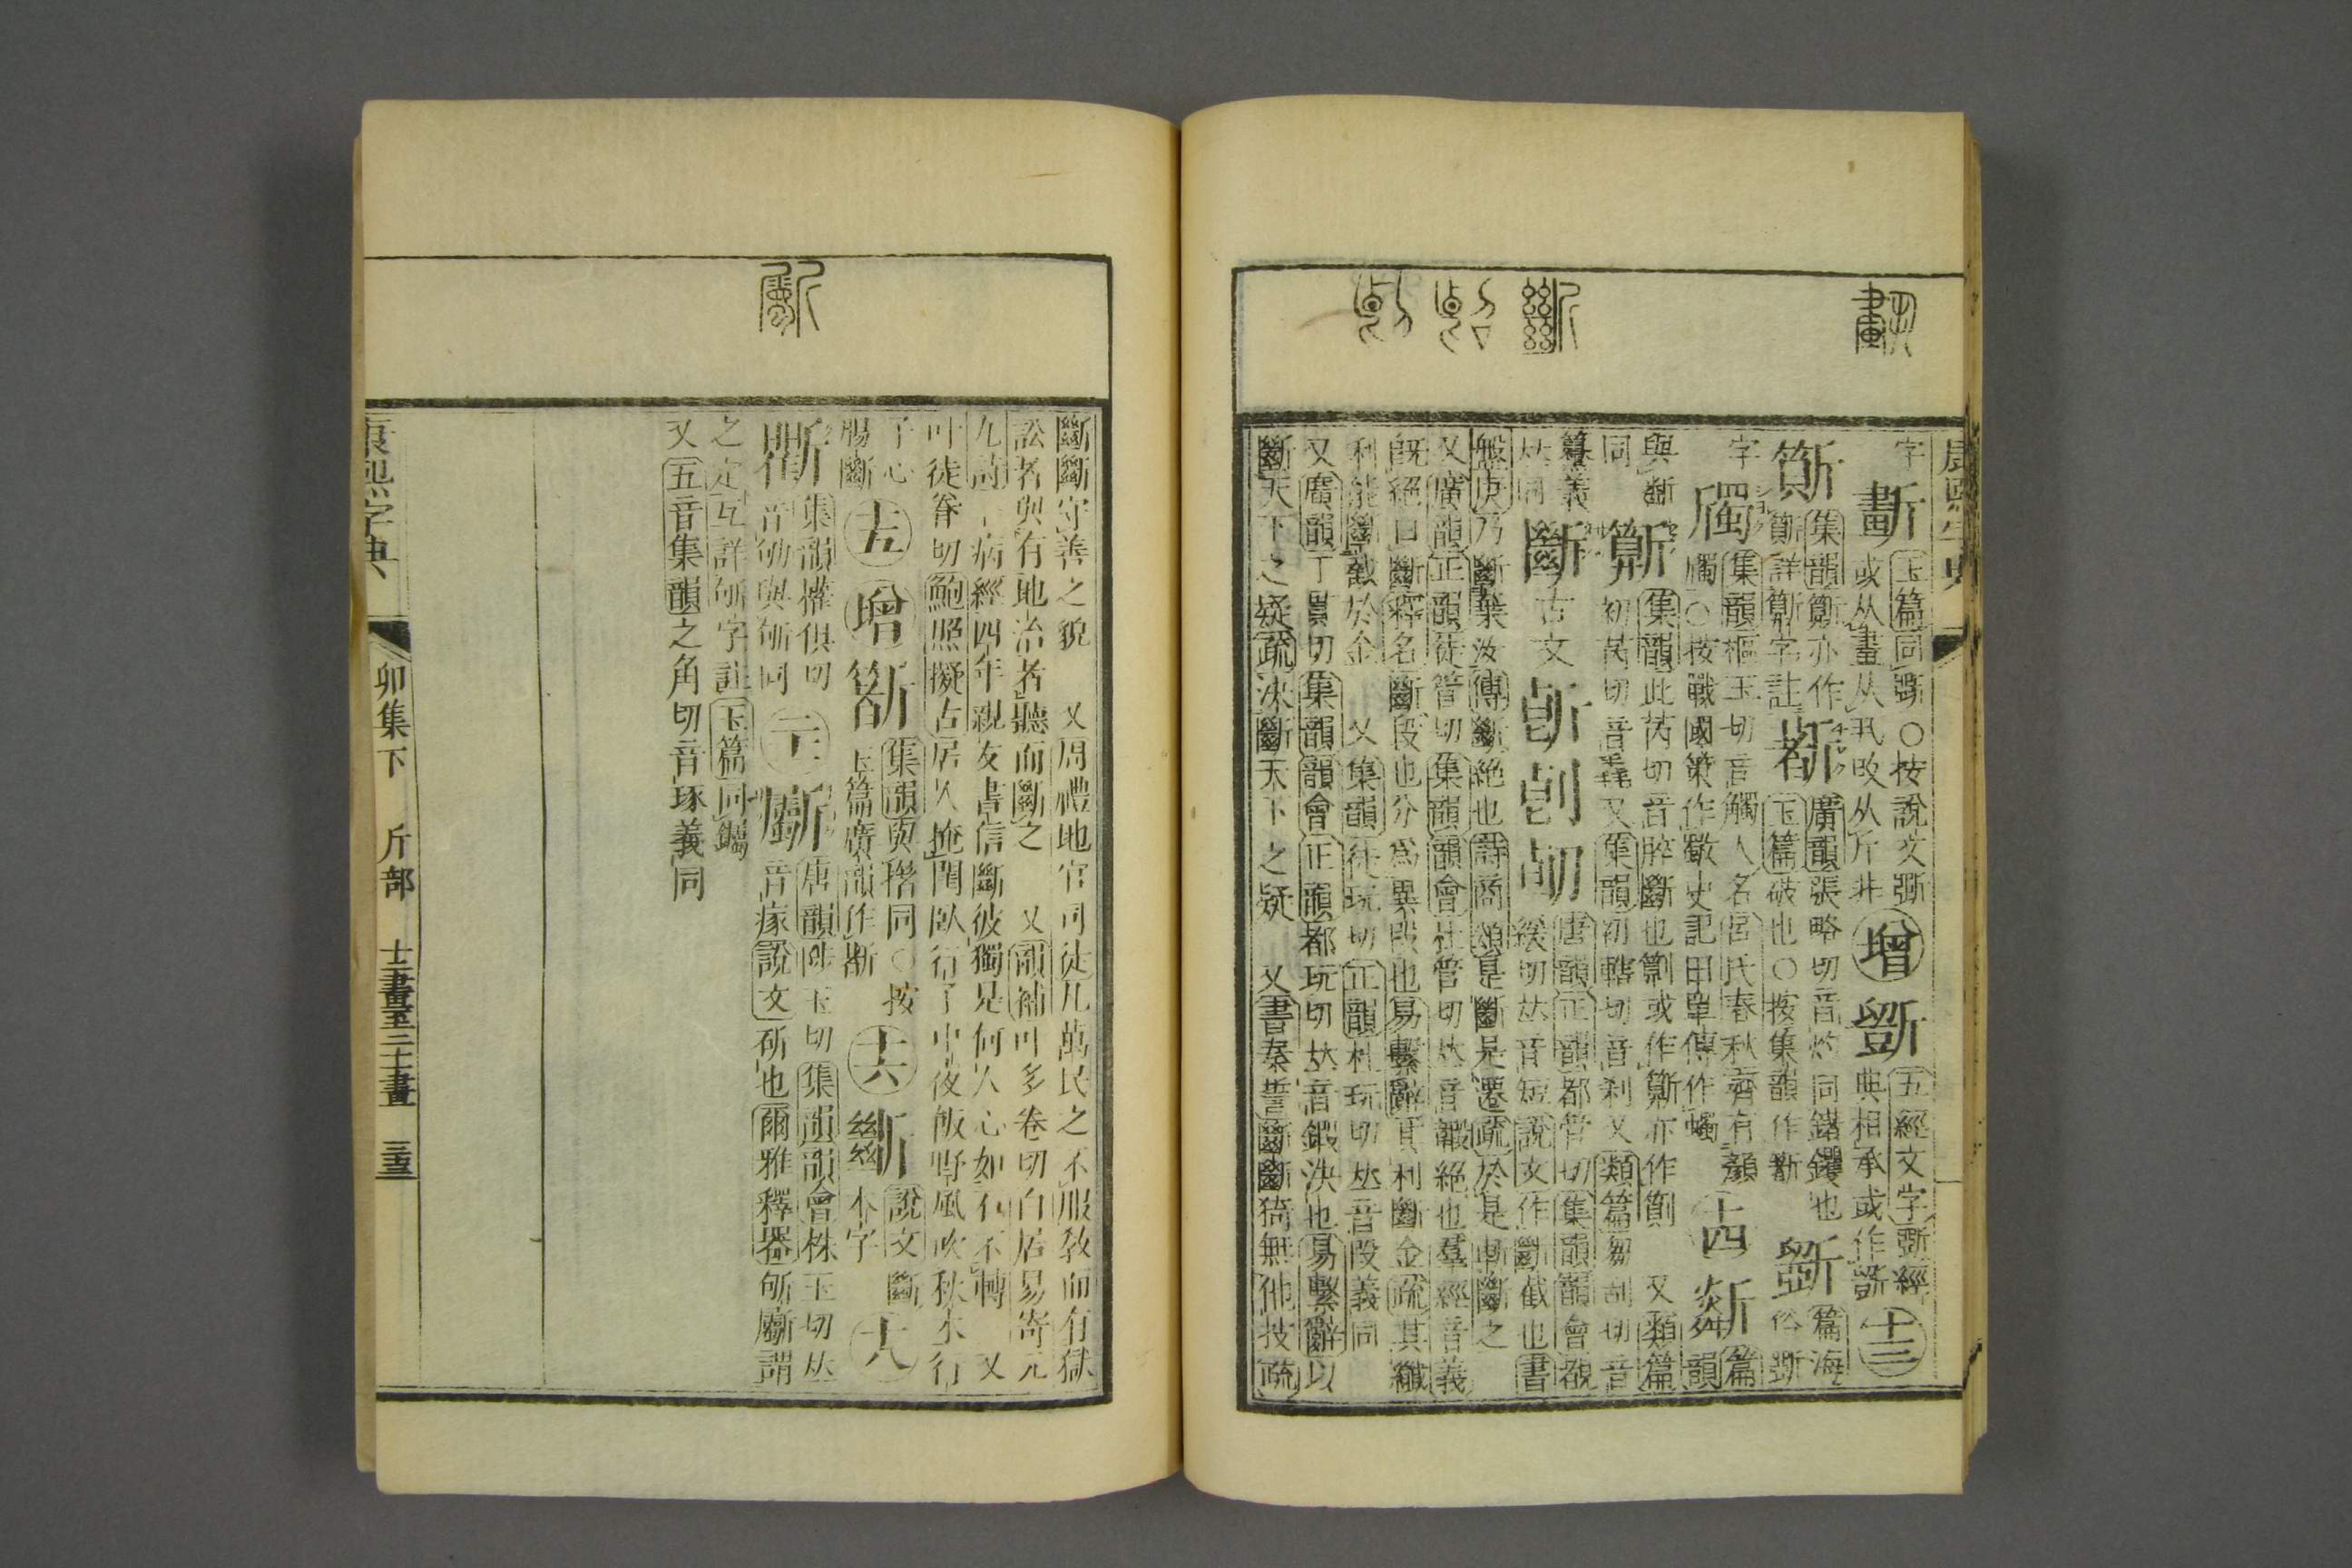 字
玉篇同斲○按說文斲
或从畫从丮
增
五經文字斲經
典相承或作
十三
集韻
亦作
詳
字註
廣韻張略切音灼同鐯钁也
玉篇破也○按集韻作
篇海
俗斲
字
斸
集韻樞玉切音觸人名呂氏春秋齊有顏
○按戰國策作歜史記田單傳作蠋
十四
篇
韻
與斷
同
集韻此芮切音脃斷也或作亦作
初芮切音毳又集韻初轄切音刹又類篇芻刮切音
又類篇
義
𠀤同
斷
古文
唐韻正韻都管切集韻韻會覩
緩切𠀤音短說文作斷截也書
盤庚乃斷棄汝傳斷絕也詩商頌是斷是遷疏於是斬斷之
又廣韻正韻徒管切集韻韻會杜管切𠀤音斷絕也羣經音義
旣絕曰斷釋名斷段也分爲異段也易繫辭其利斷金疏其纖
利能斷截於金　又集韻徒玩切正韻杜玩切𠀤音段義同
又廣韻丁貫切集韻韻會正韻都玩切𠀤音鍛決也易繫辭以
斷天下之疑疏決斷天下之疑　又書秦誓斷斷猗無他技疏
斷斷守善之貌　又周禮地官司徒凡萬民之不服敎而有獄
訟者與有地治者聽而斷之　又韻補叶多卷切白居易寄元
九詩一病經四年親友書信斷彼獨是何人心如石不轉　又
叶徒眷切鮑照擬古居人掩閨臥行子中夜飯野風吹秋木行
子心
腸斷
十五
增
集韻與同○按
玉篇廣韻作
十六
說文斷
本字
十八
集韻權俱切
音劬與斪同
二十
斸
唐韻陟玉切集韻韻會株玉切𠀤
音瘃說文斫也爾雅釋器斪斸謂
之定互詳斪字註玉篇同钃
又五音集韻之角切音琢義同
康熙字典
卯集下　斤部　十三畫至二十一畫